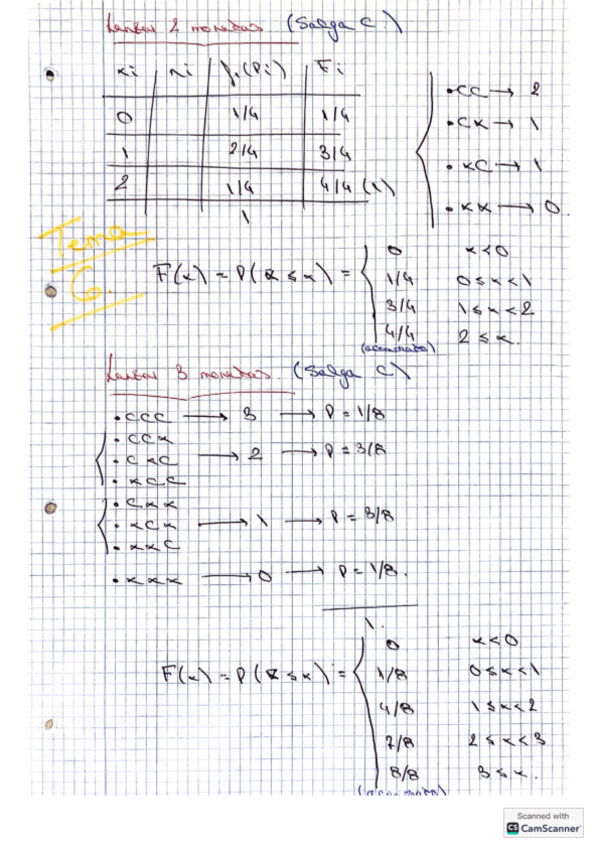 Lanzar 2 monedas (Salga C.)
xi ni fi (Pi) Fi
0 1/4 1/4
1 2/4 3/4
2 1/4 4/4 (1)
1
• CC → 2
• CX → 1
• XC → 1
• XX → 0.
Tema 6.
F(x) = P(X ≤ x) = { 0 x < 0
1/4 0 ≤ x < 1
3/4 1 ≤ x < 2
4/4 2 ≤ x.
(acumulado)
Lanzar 3 monedas. (Salga C)
• CCC → 3 → P = 1/8
• CCX
• CXC → 2 → P = 3/8
• XCC
• CXX
• XCX → 1 → P = 3/8
• XXC
• XXX → 0 → P = 1/8.
1.
F(x) = P(X ≤ x) = { 0 x < 0
1/8 0 ≤ x < 1
4/8 1 ≤ x < 2
7/8 2 ≤ x < 3
8/8 3 ≤ x.
(acumulado)
Scanned with
CS CamScanner